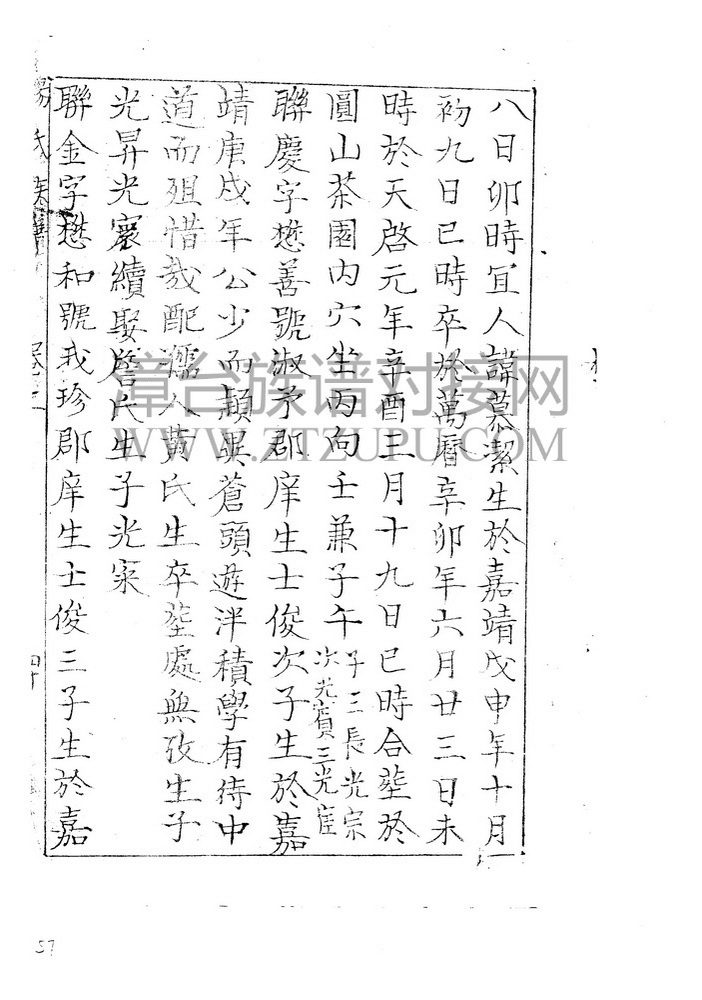 八日卯時宜人諱慕潔生於嘉靖戊申年十月
初九日巳時卒於萬曆辛卯年六月廿三日未
時於天啓元年辛酉三月十九日巳時合塟於
圓山茶園内穴坐丙向壬兼子午
子三長光宗
次光賓三光
聯慶字懋善號淑予郡庠生士俊次子生於嘉
靖庚戌年公少而穎異蒼頭遊泮積學有待中
道而殂惜哉配孺人黃氏生卒塟處無攷生子
光昇光寰續娶詹氏生子光寀
聯金字懋和號我珍郡庠生士俊三子生於嘉
楊氏族譜 卷之 四十
章台族谱对接网
WWW.ZTZUPU.COM
57